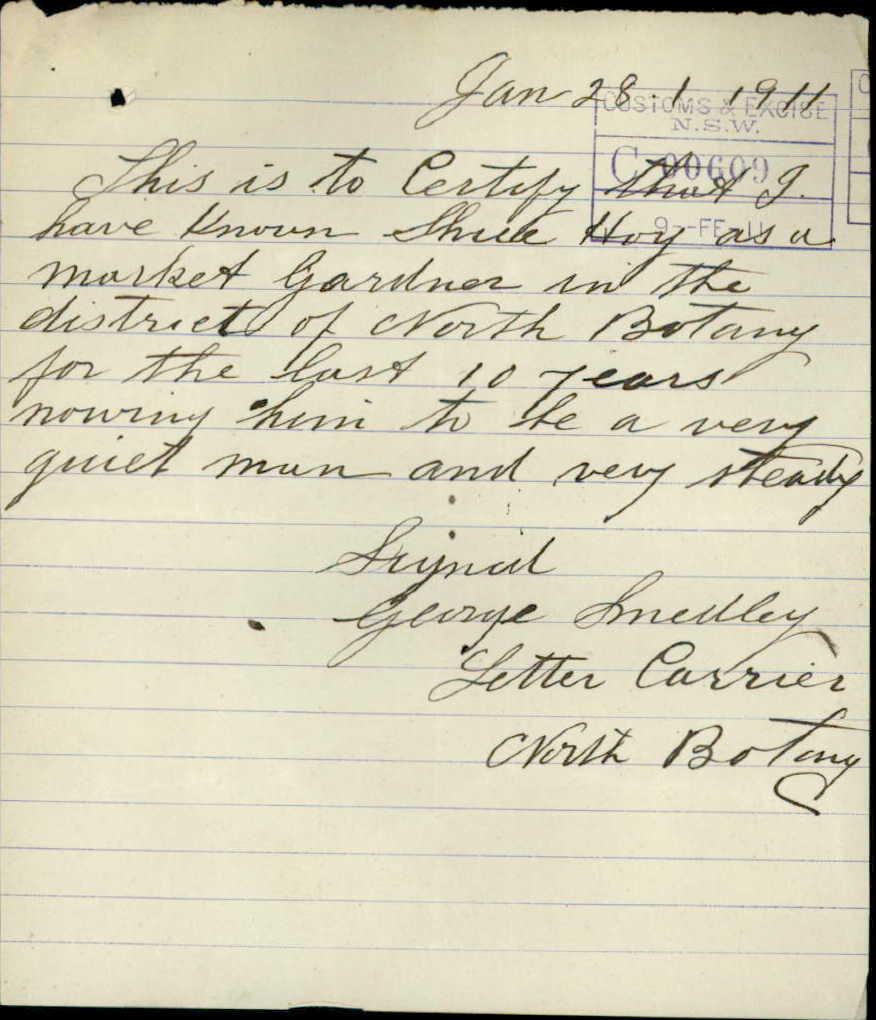 Jan 28.1 1911
CUSTOMS & EXCISE
N.S.W.
C 00609
9--FE 11
This is to Certify that I.
have Known Shue Hoy as a
market Gardner in the
district of North Botany
for the last 10 years
nowing him to be a very
quiet man and very steady
Signed
George Smedley
Letter Carrier
North Botany